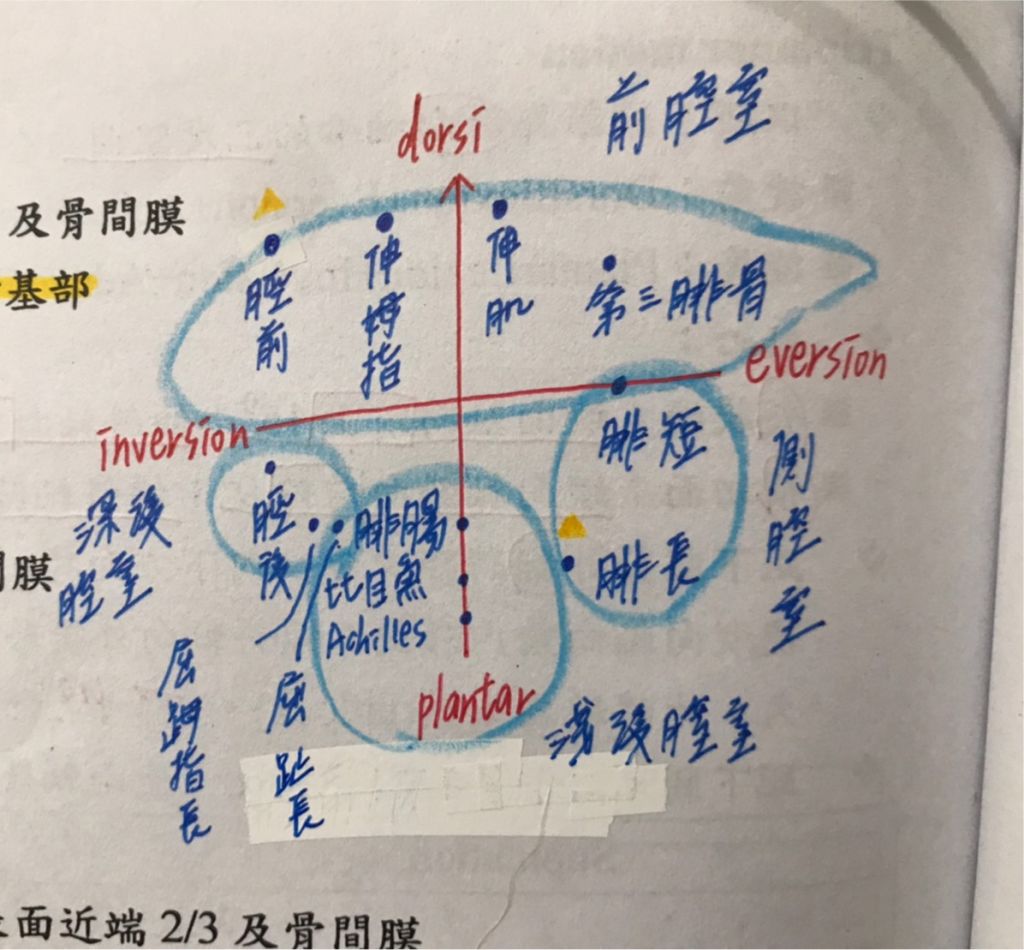 前腔室
dorsi
及骨間膜
基部
脛前
伸拇指
伸肌
第三腓骨
eversion
inversion
腓短
側腔室
深後腔室
脛後
腓腸
比目魚
Achilles
腓長
膜
屈拇指長
屈趾長
plantar
淺後腔室
面近端 2/3 及骨間膜